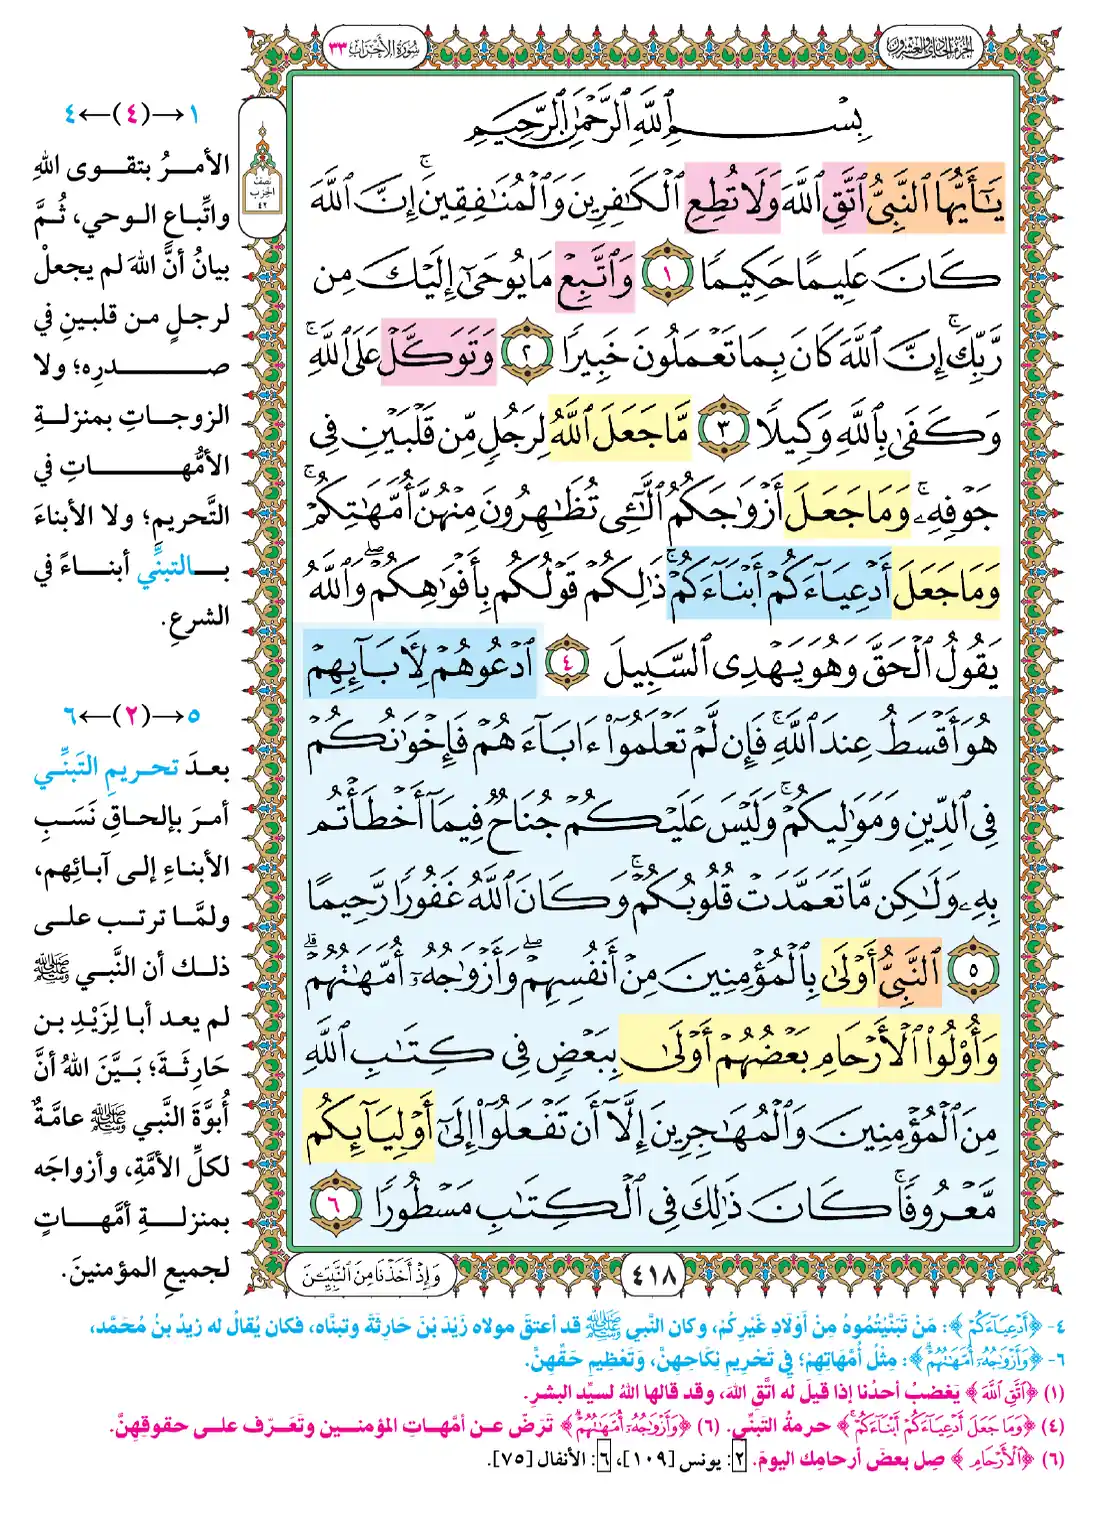 الجزء الحادي والعشرون
سورة الأحزاب ٣٣
نصف
الحزب
٤٢
بِسْمِ ٱللَّهِ ٱلرَّحْمَٰنِ ٱلرَّحِيمِ
يَٰٓأَيُّهَا ٱلنَّبِىُّ ٱتَّقِ ٱللَّهَ وَلَا تُطِعِ ٱلْكَٰفِرِينَ وَٱلْمُنَٰفِقِينَ ۚ إِنَّ ٱللَّهَ
كَانَ عَلِيمًا حَكِيمًا ١ وَٱتَّبِعْ مَا يُوحَىٰٓ إِلَيْكَ مِن
رَّبِّكَ ۚ إِنَّ ٱللَّهَ كَانَ بِمَا تَعْمَلُونَ خَبِيرًا ٢ وَتَوَكَّلْ عَلَى ٱللَّهِ ۚ
وَكَفَىٰ بِٱللَّهِ وَكِيلًا ٣ مَّا جَعَلَ ٱللَّهُ لِرَجُلٍ مِّن قَلْبَيْنِ فِى
جَوْفِهِۦ ۚ وَمَا جَعَلَ أَزْوَٰجَكُمُ ٱلَّٰٓـِٔى تُظَٰهِرُونَ مِنْهُنَّ أُمَّهَٰتِكُمْ ۚ
وَمَا جَعَلَ أَدْعِيَآءَكُمْ أَبْنَآءَكُمْ ۚ ذَٰلِكُمْ قَوْلُكُم بِأَفْوَٰهِكُمْ ۖ وَٱللَّهُ
يَقُولُ ٱلْحَقَّ وَهُوَ يَهْدِى ٱلسَّبِيلَ ٤ ٱدْعُوهُمْ لِءَابَآئِهِمْ
هُوَ أَقْسَطُ عِندَ ٱللَّهِ ۚ فَإِن لَّمْ تَعْلَمُوٓا۟ ءَابَآءَهُمْ فَإِخْوَٰنُكُمْ
فِى ٱلدِّينِ وَمَوَٰلِيكُمْ ۚ وَلَيْسَ عَلَيْكُمْ جُنَاحٌ فِيمَآ أَخْطَأْتُم
بِهِۦ وَلَٰكِن مَّا تَعَمَّدَتْ قُلُوبُكُمْ ۚ وَكَانَ ٱللَّهُ غَفُورًا رَّحِيمًا
٥ ٱلنَّبِىُّ أَوْلَىٰ بِٱلْمُؤْمِنِينَ مِنْ أَنفُسِهِمْ ۖ وَأَزْوَٰجُهُۥٓ أُمَّهَٰتُهُمْ ۗ
وَأُو۟لُوا۟ ٱلْأَرْحَامِ بَعْضُهُمْ أَوْلَىٰ بِبَعْضٍ فِى كِتَٰبِ ٱللَّهِ
مِنَ ٱلْمُؤْمِنِينَ وَٱلْمُهَٰجِرِينَ إِلَّآ أَن تَفْعَلُوٓا۟ إِلَىٰٓ أَوْلِيَآئِكُم
مَّعْرُوفًا ۚ كَانَ ذَٰلِكَ فِى ٱلْكِتَٰبِ مَسْطُورًا ٦
٤١٨
وَإِذْ أَخَذْنَا مِنَ ٱلنَّبِيِّـۧنَ
١→(٤)←٤
الأمرُ بتقوى اللهِ
واتِّباعِ الوحي، ثُمَّ
بيانُ أنَّ اللهَ لم يجعلْ
لرجلٍ من قلبينِ في
صدرِه؛ ولا
الزوجاتِ بمنزلةِ
الأمَّهاتِ في
التَّحريمِ؛ ولا الأبناءَ
بالتبنِّي أبناءً في
الشرعِ.
٥→(٢)←٦
بعدَ تحريمِ التَبنِّي
أمرَ بإلحاقِ نَسَبِ
الأبناءِ إلى آبائِهم،
ولمَّا ترتب على
ذلك أن النَّبي ﷺ
لم يعد أبا لِزَيْدِ بن
حَارِثَةَ؛ بَيَّنَ اللهُ أنَّ
أُبوَّةَ النَّبي ﷺ عامَّةٌ
لكلِّ الأمَّةِ، وأزواجَه
بمنزلةِ أمَّهاتٍ
لجميعِ المؤمنينَ.
٤- ﴿أَدْعِيَآءَكُمْ﴾: مَنْ تَبَنَّيْتُمُوهُ مِنْ أَوْلَادِ غَيْرِكُمْ، وكان النَّبي ﷺ قد أعتقَ مولاه زَيْدَ بْنَ حَارِثَةَ وتبنَّاه، فكان يُقالُ له زيدُ بنُ مُحَمَّد،
٦- ﴿وَأَزْوَٰجُهُۥٓ أُمَّهَٰتُهُمْ ۗ﴾: مِثْلُ أُمَّهَاتِهِمْ؛ فِي تَحْرِيمِ نِكَاحِهِنَّ، وَتَعْظِيمِ حَقِّهِنَّ.
(١) ﴿ٱتَّقِ ٱللَّهَ﴾ يَغضبُ أحدُنا إذا قيلَ له اتَّقِ اللهَ، وقد قالها اللهُ لسيِّد البشرِ.
(٤) ﴿وَمَا جَعَلَ أَدْعِيَآءَكُمْ أَبْنَآءَكُمْ ۚ﴾ حرمةُ التَبنِّي. (٦) ﴿وَأَزْوَٰجُهُۥٓ أُمَّهَٰتُهُمْ ۗ﴾ تَرَضَّ عن أمَّهاتِ المؤمنين وتَعَرَّف على حقوقِهِنَّ.
(٦) ﴿ٱلْأَرْحَامِ﴾ صِل بعضَ أرحامِك اليومَ. ٢: يونس [١٠٩]، ٦: الأنفال [٧٥].